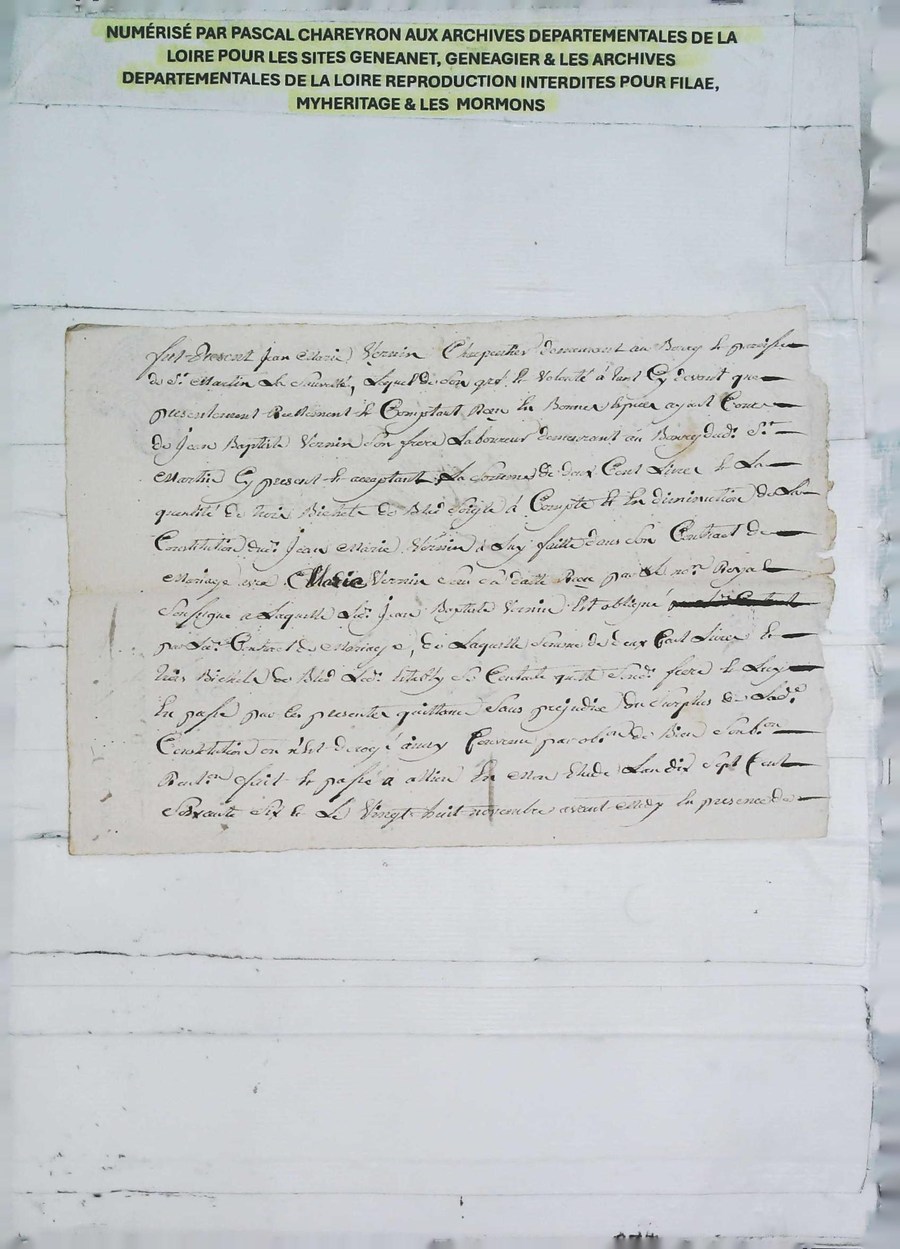 NUMÉRISÉ PAR PASCAL CHAREYRON AUX ARCHIVES DEPARTEMENTALES DE LA
LOIRE POUR LES SITES GENEANET, GENEAGIER & LES ARCHIVES
DEPARTEMENTALES DE LA LOIRE REPRODUCTION INTERDITES POUR FILAE,
MYHERITAGE & LES MORMONS
fut Present Jean Marie Vernin Charpentier demeurant au Bourg & paroisse
de St. Martin La Sauveté, Lequel de Son gré & Volonté à tant Cy devant que
presentement Reellement & Comptant Reçu En Bonnes Espèces ayant Cours
de Jean Baptiste Vernin Son frere Laboureur demeurant au Bourg dud. St.
Martin Cy present & acceptant La Somme de deux Cent Livres & La
quantité de trois Bichets de Bled Seigle à Compte & En diminution de La
Constitution dud. Jean Marie Vernin à Luy faitte dans Son Contract de
Mariage avec Marie Vernin Sous Sa datte Reçu par Le nore. Royal
Soussigné a Laquelle Led. Jean Baptiste Vernin S'est obligé
par Led. Contract de Mariage, de Laquelle Somme de deux Cent Livres &
trois Bichets de Bled Led. Estably Se Contente quitte Sond. frere & Luy
En passe par Ces presentes quittance Sans prejudice du Surplus de Lad.
Constitution en n'Est derogé ainsy Convenu par obon. de Bien Soubon.
Renton. fait & passé a En Mon Etude L'an dix Sept Cent
Soixante Six & Le Vingt huit novembre avant Midy En presence de